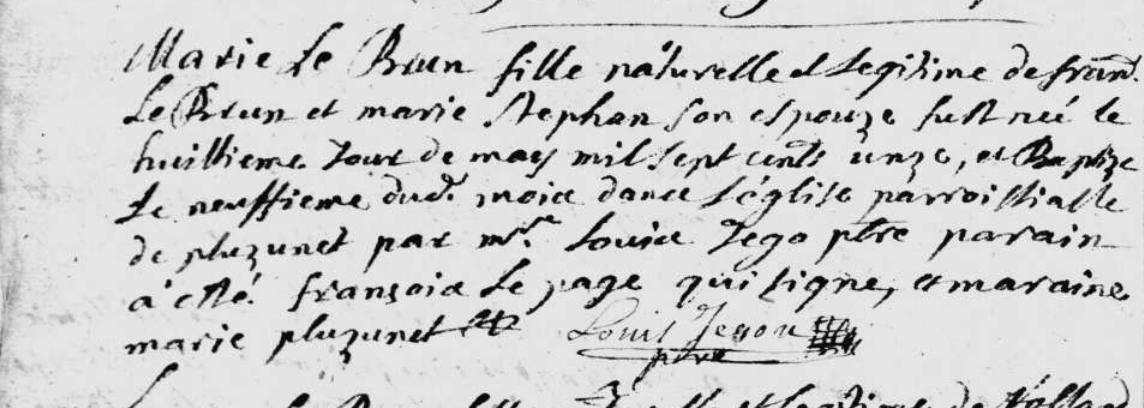 Marie Le Brun fille naturelle et Legitime de franc.
Le Brun et marie Stephan son espouze fust née le
huittieme Jour de may mil sept cents unze, et Baptize
Le neuffieme dud. moice dance L'église parroissialle
de pluzunet par mr. Louice Jego ptre parain
a'esté françoice Le page qui signe, et maraine
marie pluzunet
Louis Jegou
ptre